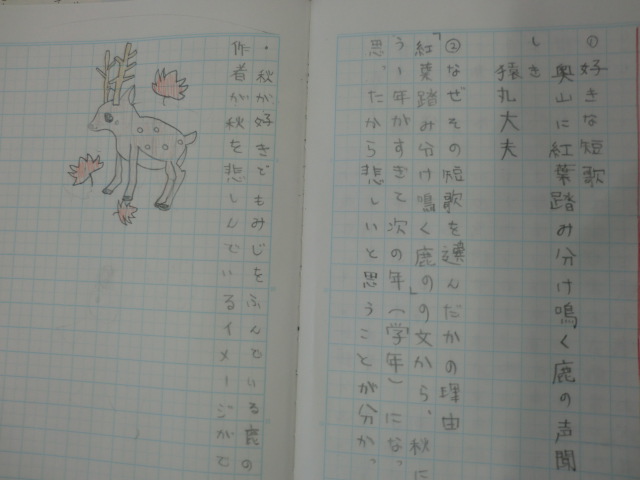 ①好きな短歌
奥山に紅葉踏み分け鳴く鹿の声聞
しき
猿丸大夫
②なぜその短歌を選んだかの理由
「紅葉踏み分け鳴く鹿の」の文から、秋に
う、年がすぎて次の年(学年)にな
思、たから悲しいと思うことが分か
・秋が好きでもみじをふんでいる鹿の
作者が秋を悲しんでいるイメージがで